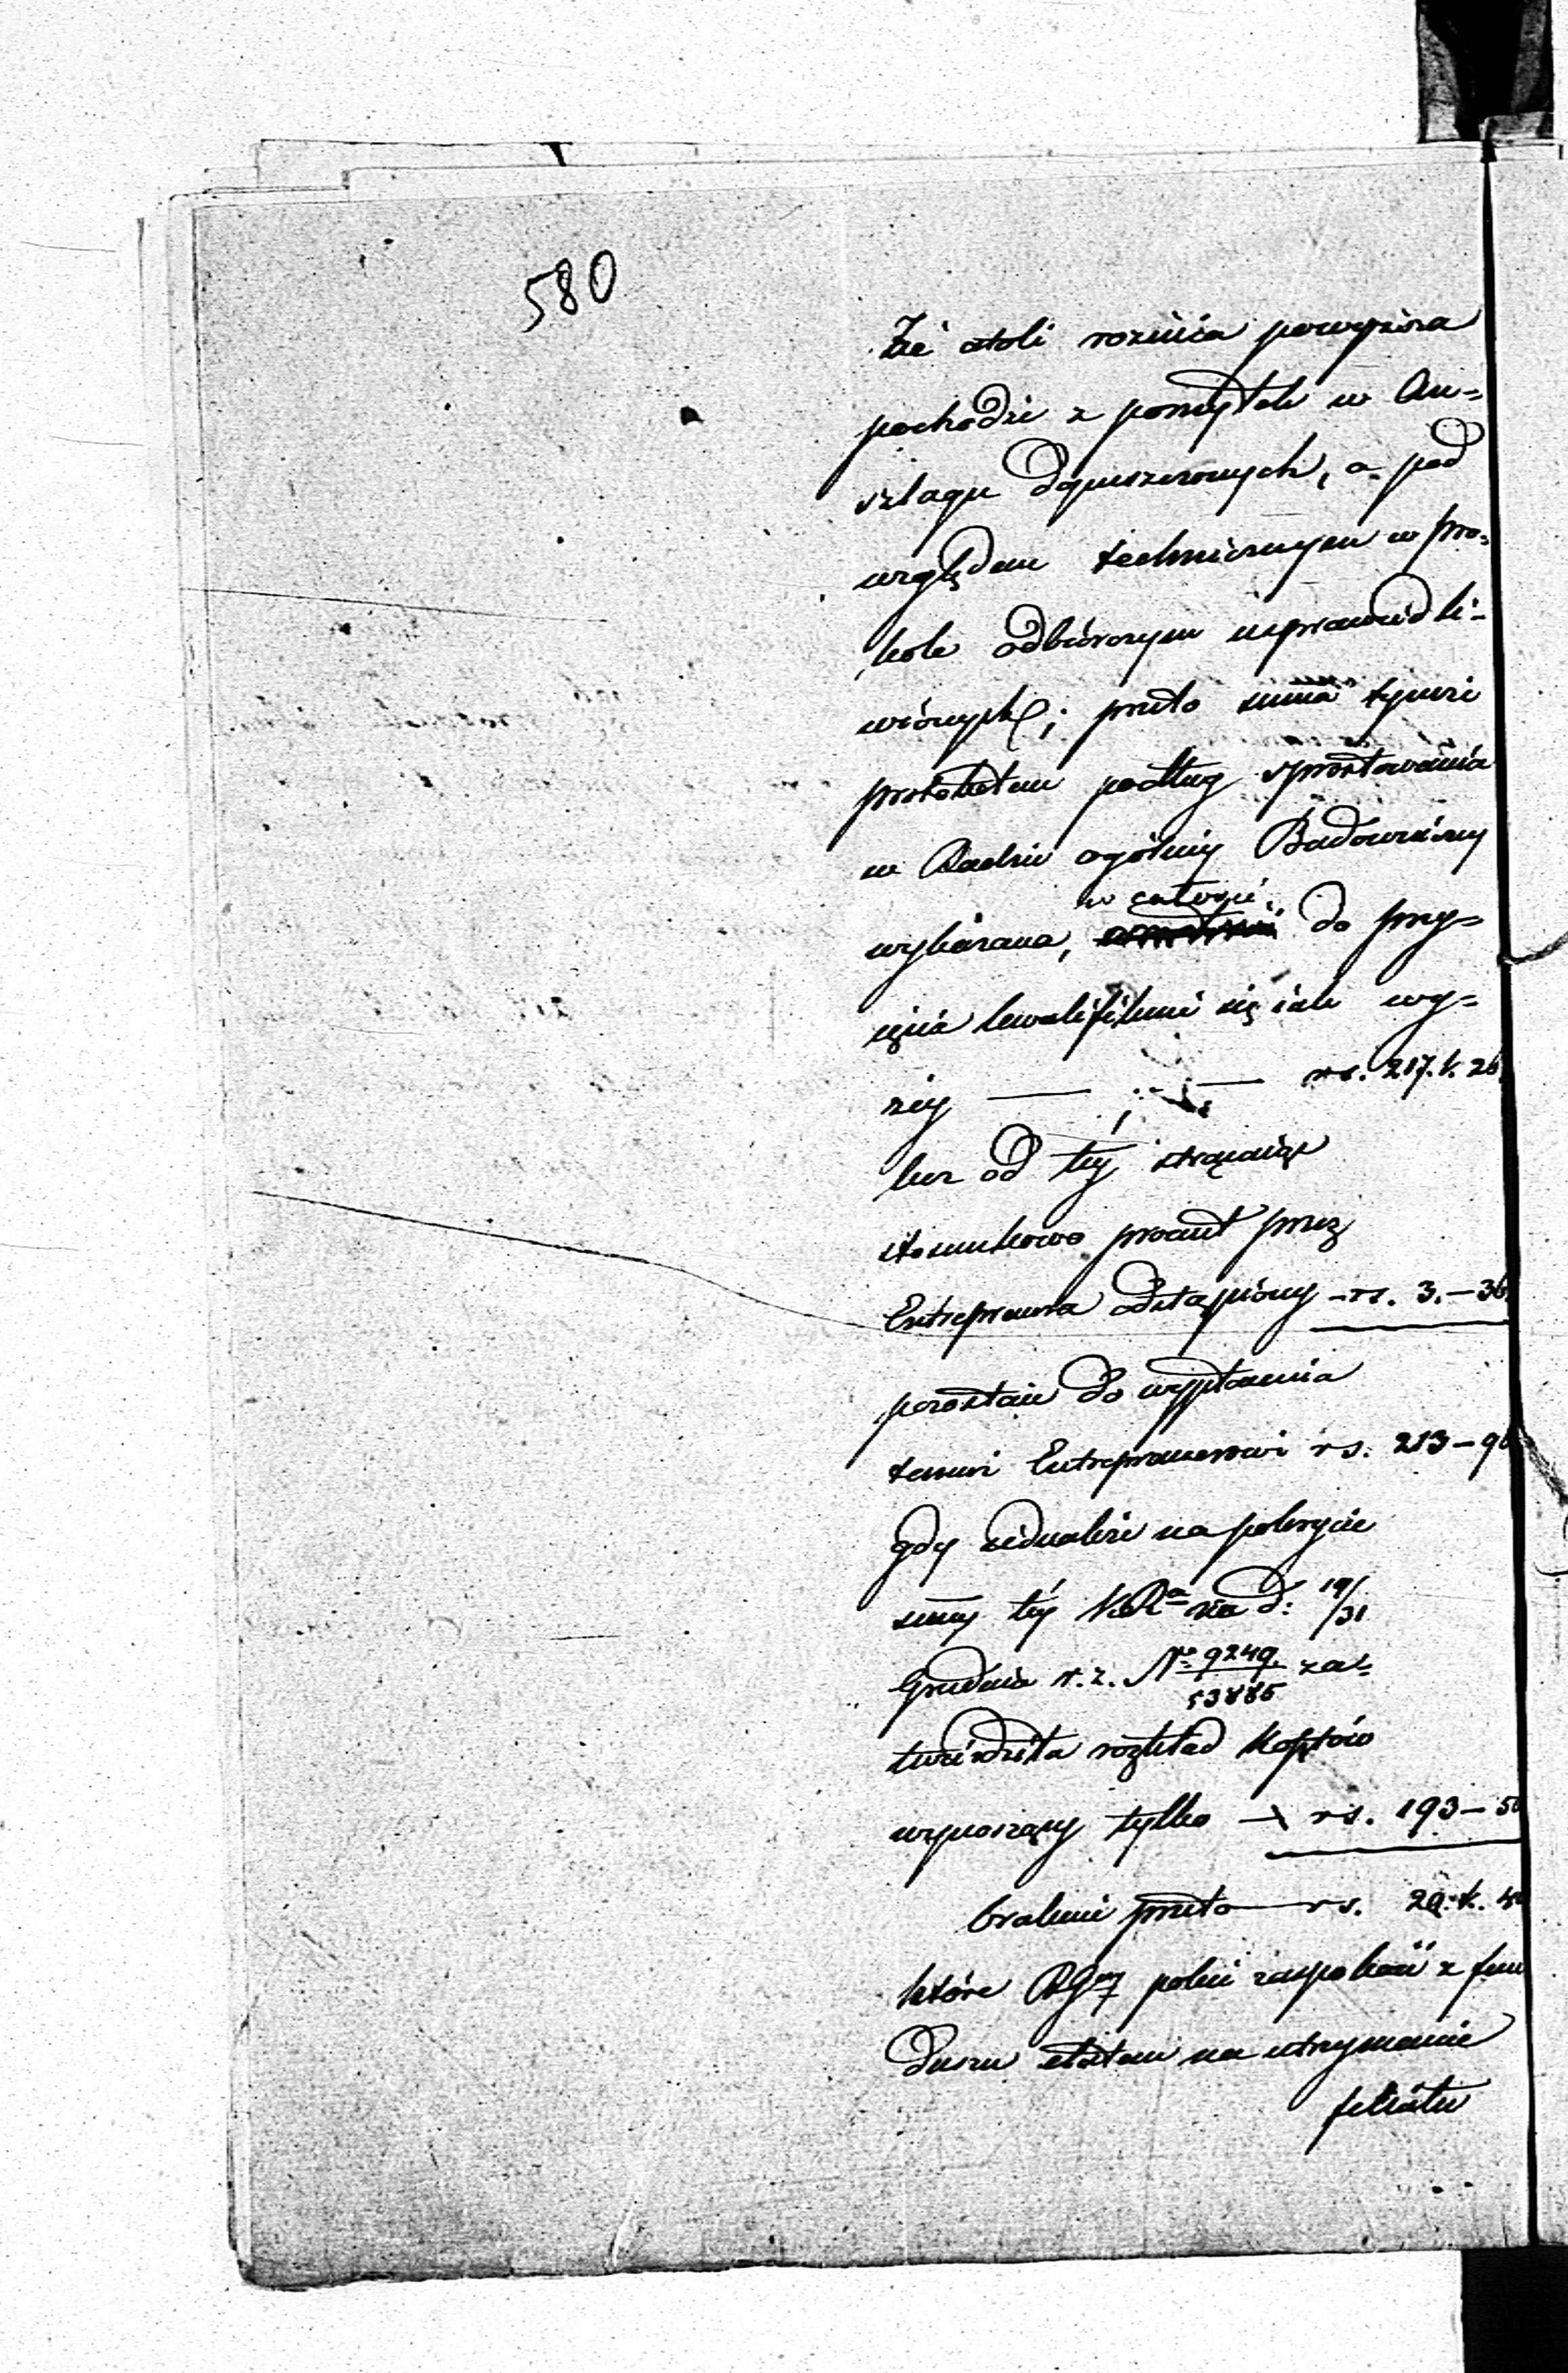 580
Że atoli różnica powyższa
pochodzi z pomyłek w An-
szlagu dopuszczonych, a pod
względem technicznym w pro-
kole odbiorczym usprawiedli-
wionych; przeto summa tymże
protokołem podług sprostowania
w Radzie ogólnéj Budowniczéj
w całości
wykazana, do przy-
ięcia kwalifikuie się iak wy-
żéj — rs. 217. k. 26
lecz od téj strącaiąc
stosunkowo procent przez
Entreprenera odstąpiony — rs. 3. — 36
pozostaie do wypłacenia
temuż Entreprenerowi rs. 213 — 90
gdy iednakże na pokrycie
summy téj KRa na d: 19/31
Grudnia r. z. No 9249/53885 za-
twierdziła rozkład kosztów
wynoszący tylko — rs. 193 — 50
brakuie przeto — rs. 20. k. 40
które RGny poleci zaspokoić z fun
duszu etatem na utrzymanie